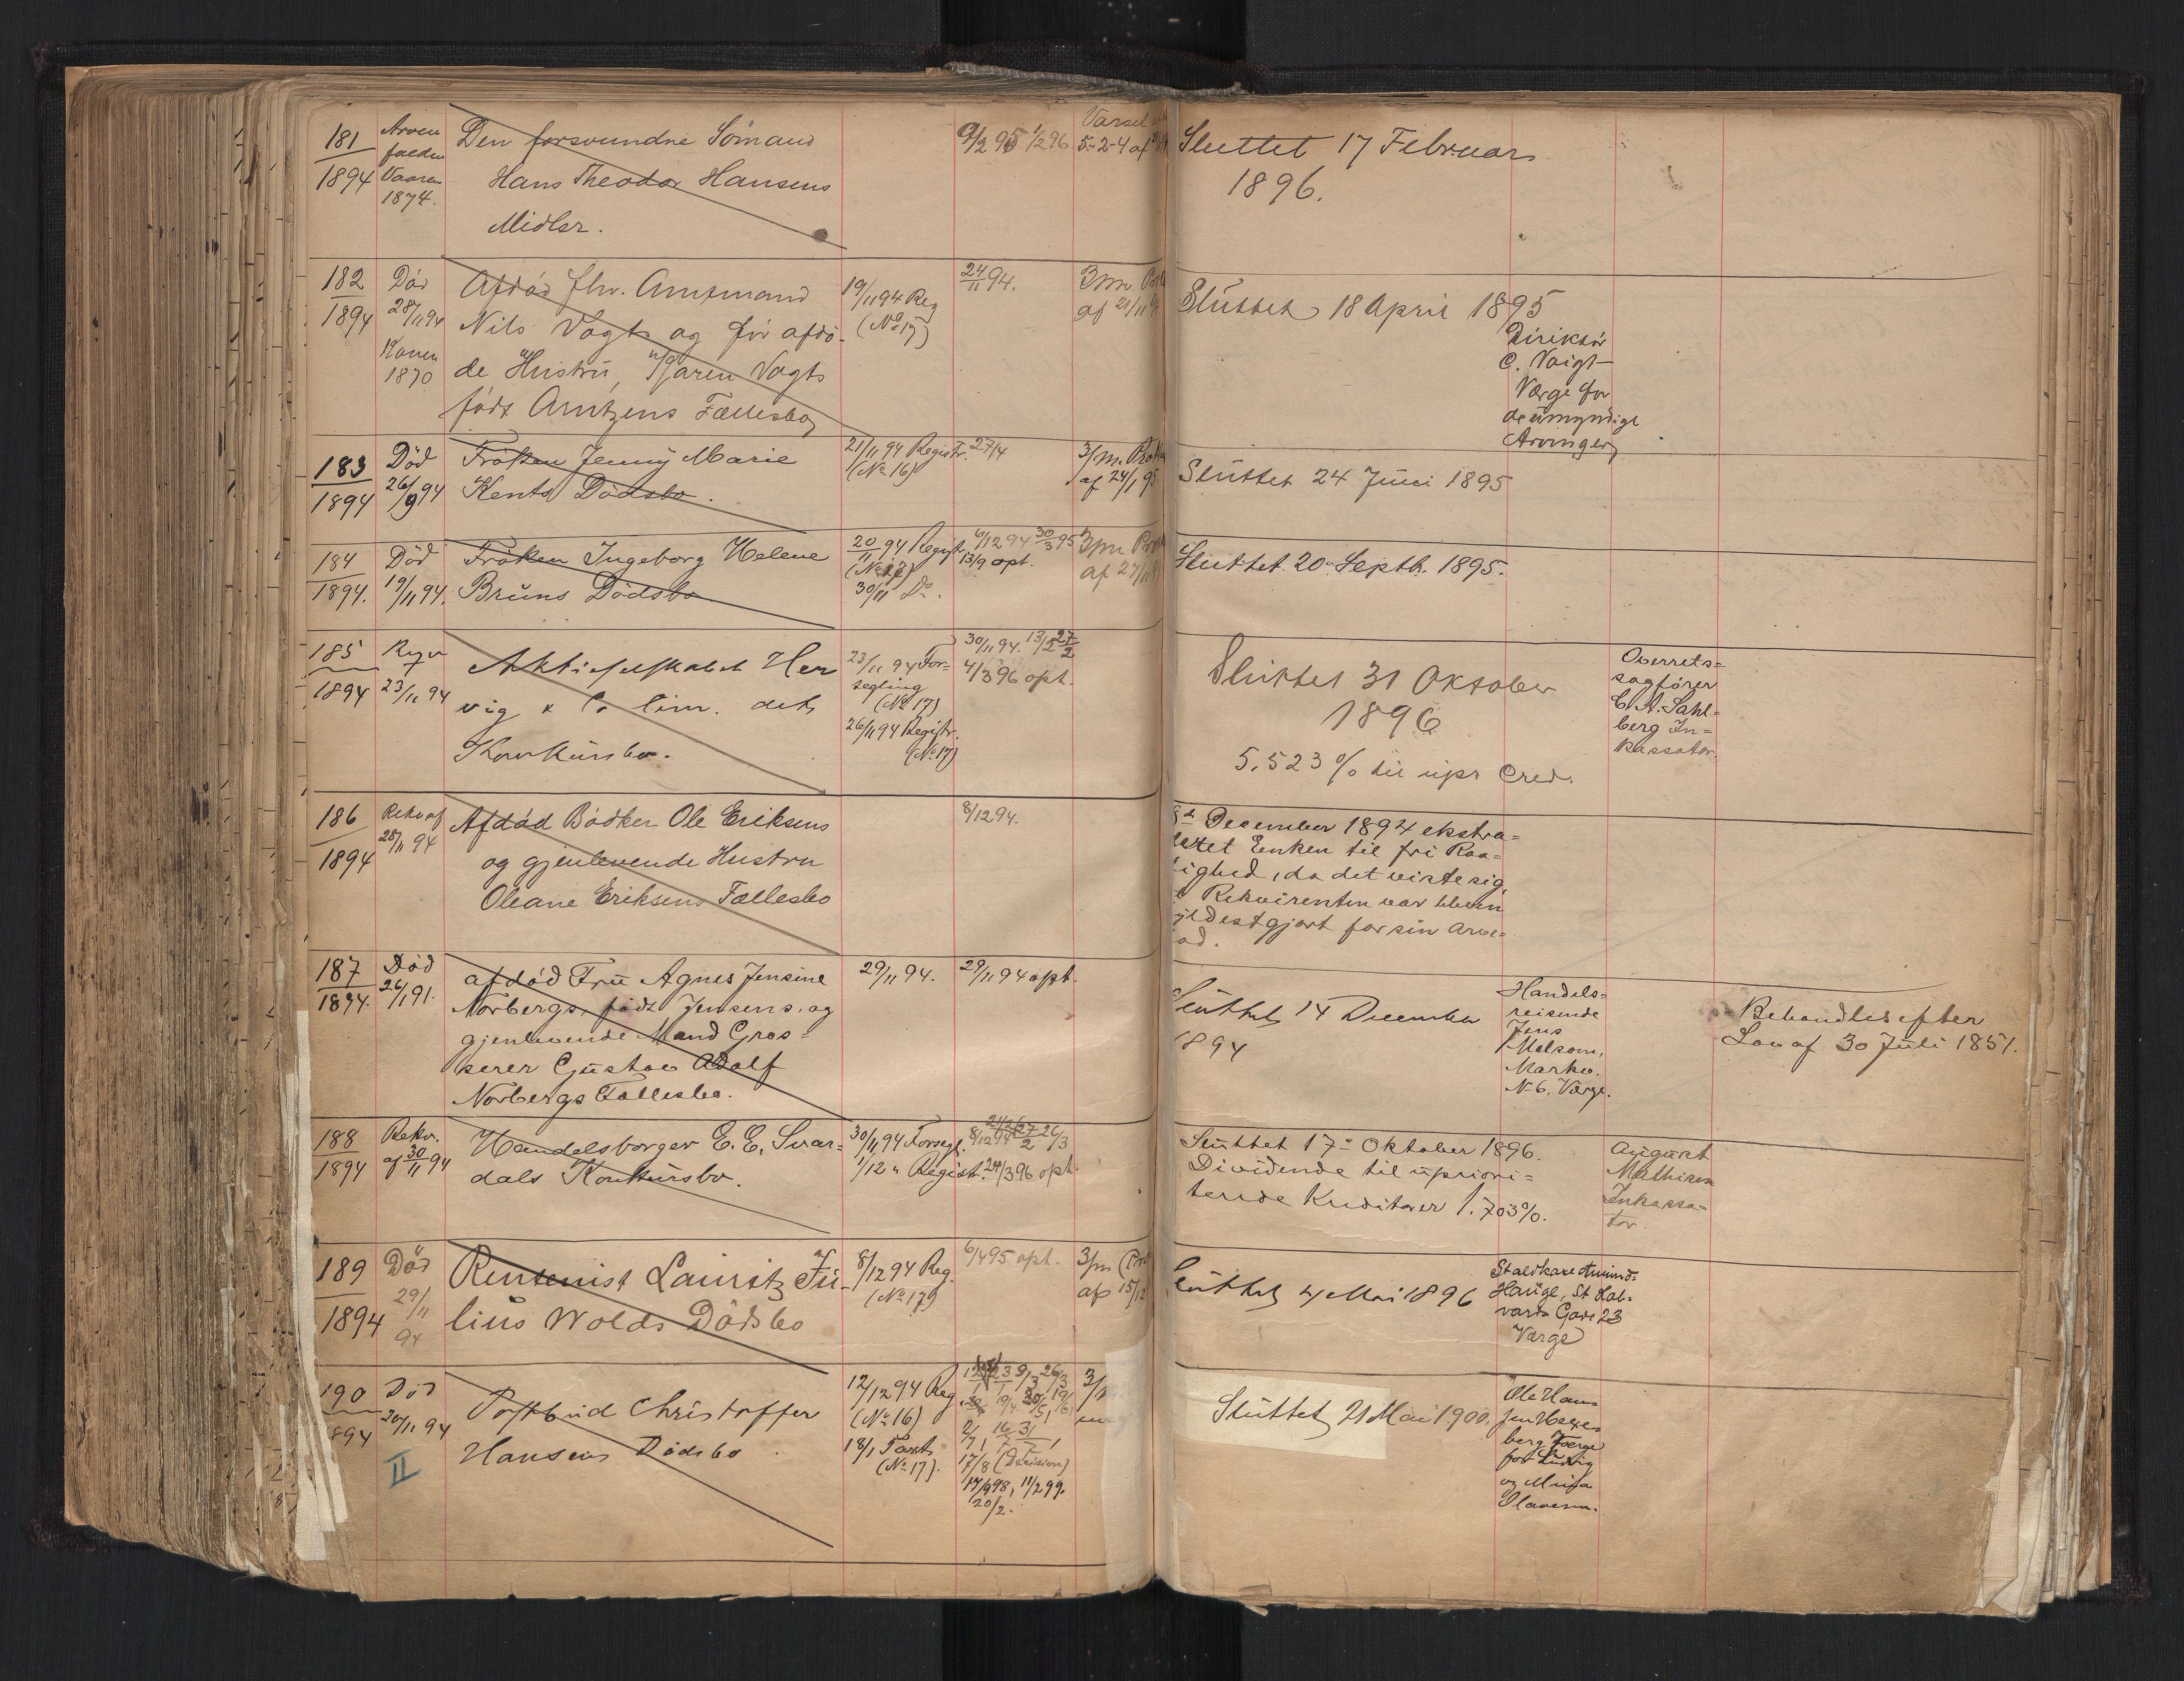 181
1894
Arven
falden
Vaaren
1874.
Den forsvundne Sömand
Hans Theodor Hansens
Midler.
9/2 95 1/2 96
Varsel
5-2-4 af
Sluttet 17 Februar
1896.
182
1894
Död
28/11 94
Konen
1870
Afdöd fhv. Amtmand
Nils Vogts og för afdö-
de Hustru, Karen Vogts
født Arntzens Fællesbo
19/11 94 Reg
(No 17)
24/11 94.
3 m. Prok
af 21/11
Sluttet 18 April 1895
Direktör
C. Voigt
Værge for
de umyndige
Arvinger
183
1894
Död
26/9 94
Fröken Jenny Marie
Kents Dödsbo.
21/11 94 Registr.
(No 16)
27/4
3/m. Prok
af 24/1 95
Sluttet 24 Juni 1895
184
1894.
Död
19/11 94.
Fröken Ingeborg Helene
Bruns Dödsbo
20/11 94 Regist.
(No 17)
30/11 Do.
6/12 94 30/3 95
13/9 opt.
3 m Prok
af 27/11
Sluttet 20 Septb. 1895.
185
1894
23/11 94
Aktieselskabet Her
vig & Co lim. dets
Konkursbo.
23/11 94 For=
segling
(No 17)
26/11 94 Registr.
(No 17)
30/11 94. 13/2 27/2
4/3 96 opt.
Sluttet 31 Oktober
1896
5,523 % til upr Cred.
Overrets=
sagförer
C. A. Sahl=
berg In=
kassator.
186
1894
Rekv af
28/11 94
Afdöd Bödker Ole Eriksens
og gjenlevende Hustru
Oleane Eriksens Fællesbo
8/12 94.
8de December 1894 ekstra=
Enken til fri Raa=
ighed, da det viste sig,
Rekvirenten var bleven
yldestgjort for sin Arve=
od.
187
1894.
Död
26/1 91.
afdöd Fru Agnes Jensine
Norbergs, født Jensens, og
gjenlevende Mand Gros=
serer Gustav Adolf
Norbergs Fællesbo.
29/11 94.
29/11 94 opt.
Sluttet 14 December
1894
Handels=
reisende
Jens
Melsom,
Markv.
No 6, Værge.
Behandles efter
Lov af 30 Juli 1851.
188
1894
Rekv.
af 30/11 94
Handelsborger E. E. Svar=
dals Konkursbo.
30/11 94 Forsegl.
1/12 " Regist.
8/12 94 27/2 26/3
24/3 96 opt.
Sluttet 17de Oktober 1896.
Dividende til upriori=
terede Kreditorer 1.703%.
August
Mathisen
Inkassa=
tor.
189
1894
Död
29/11
94
Rentenist Lauritz Ju-
lius Wolds Dödsbo
8/12 94 Reg.
(No 17)
6/4 95 opt.
3/m (Pr
af 15/12
Sluttet 4 Mai 1896
Staldkarl Amund
Hauge, St Hal-
vards Gade 23
Værge
190
894
Död
20/11 94
II
Postbud Christoffer
Hansens Dödsbo.
12/12 94 Reg
(No 16)
18/1 Taxt.
(No 17).
9/3 26/3
17/8 (Decision)
17/4 98, 11/2 99.
20/2.
3/m
Sluttet 21 Mai 1900.
Ole Han=
sen
berg Værge
for Ludvig
og
Olavesen.